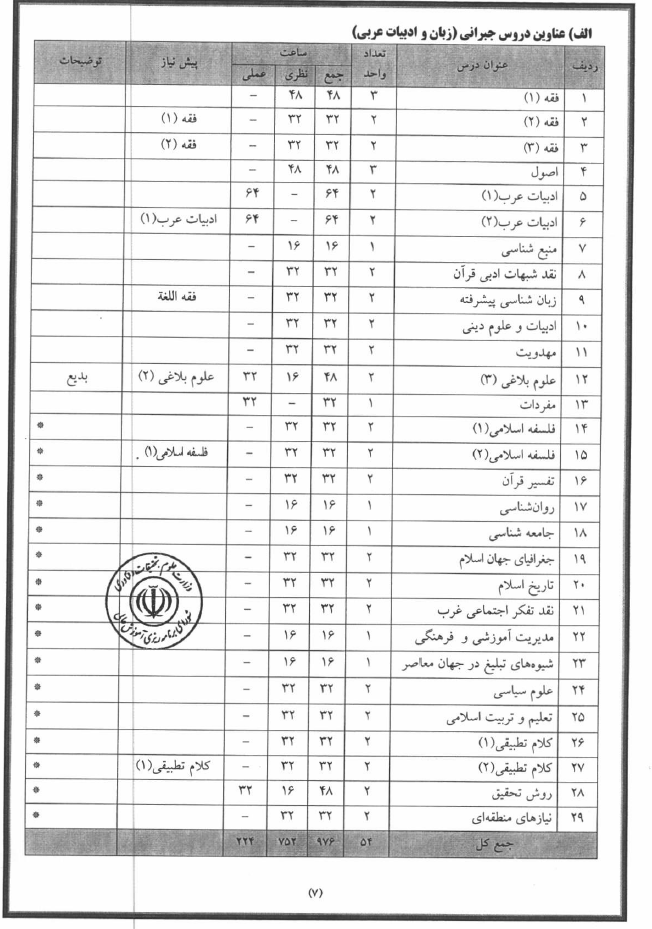 الف) عناوین دروس جبرانی (زبان و ادبیات عربی)
ردیف عنوان درس تعداد واحد ساعت پیش نیاز توضیحات
جمع نظری عملی
۱ فقه (۱) ۳ ۴۸ ۴۸ –
۲ فقه (۲) ۲ ۳۲ ۳۲ – فقه (۱)
۳ فقه (۳) ۲ ۳۲ ۳۲ – فقه (۲)
۴ اصول ۳ ۴۸ ۴۸ –
۵ ادبیات عرب(۱) ۲ ۶۴ – ۶۴
۶ ادبیات عرب(۲) ۲ ۶۴ – ۶۴ ادبیات عرب(۱)
۷ منبع شناسی ۱ ۱۶ ۱۶ –
۸ نقد شبهات ادبی قرآن ۲ ۳۲ ۳۲ –
۹ زبان شناسی پیشرفته ۲ ۳۲ ۳۲ – فقه اللغة
۱۰ ادبیات و علوم دینی ۲ ۳۲ ۳۲ –
۱۱ مهدویت ۲ ۳۲ ۳۲ –
۱۲ علوم بلاغی (۳) ۲ ۴۸ ۱۶ ۳۲ علوم بلاغی (۲) بدیع
۱۳ مفردات ۱ ۳۲ – ۳۲
۱۴ فلسفه اسلامی(۱) ۲ ۳۲ ۳۲ – *
۱۵ فلسفه اسلامی(۲) ۲ ۳۲ ۳۲ – فلسفه اسلامی(۱) *
۱۶ تفسیر قرآن ۲ ۳۲ ۳۲ – *
۱۷ روان‌شناسی ۱ ۱۶ ۱۶ – *
۱۸ جامعه شناسی ۱ ۱۶ ۱۶ – *
۱۹ جغرافیای جهان اسلام ۲ ۳۲ ۳۲ – *
۲۰ تاریخ اسلام ۲ ۳۲ ۳۲ – *
۲۱ نقد تفکر اجتماعی غرب ۲ ۳۲ ۳۲ – *
۲۲ مدیریت آموزشی و فرهنگی ۱ ۱۶ ۱۶ – *
۲۳ شیوه‌های تبلیغ در جهان معاصر ۱ ۱۶ ۱۶ – *
۲۴ علوم سیاسی ۲ ۳۲ ۳۲ – *
۲۵ تعلیم و تربیت اسلامی ۲ ۳۲ ۳۲ – *
۲۶ کلام تطبیقی(۱) ۲ ۳۲ ۳۲ – *
۲۷ کلام تطبیقی(۲) ۲ ۳۲ ۳۲ – کلام تطبیقی(۱) *
۲۸ روش تحقیق ۲ ۴۸ ۱۶ ۳۲ *
۲۹ نیازهای منطقه‌ای ۲ ۳۲ ۳۲ – *
جمع کل ۵۴ ۹۷۶ ۷۵۲ ۲۲۴
وزارت علوم، تحقیقات و فناوری
شورای برنامه‌ریزی آموزش عالی
(۷)